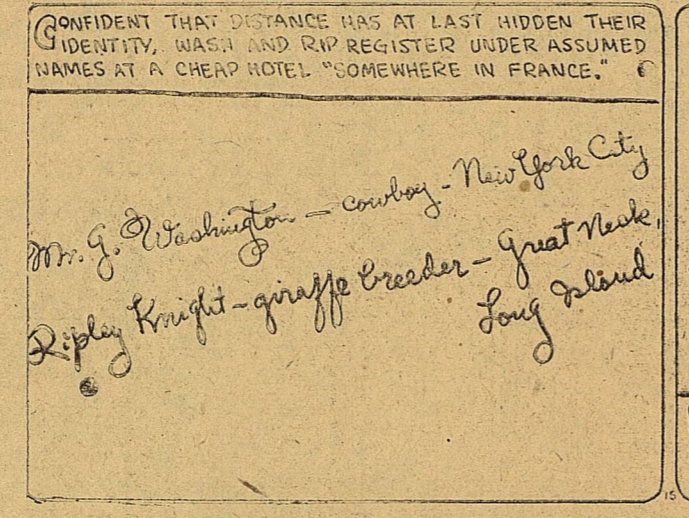 CONFIDENT THAT DISTANCE HAS AT LAST HIDDEN THEIR
IDENTITY, WASH AND RIP REGISTER UNDER ASSUMED
NAMES AT A CHEAP HOTEL "SOMEWHERE IN FRANCE."
Mr. G. Washington - cowboy - New York City
Ripley Knight - giraffe breeder - Great Neck,
Long Island
15